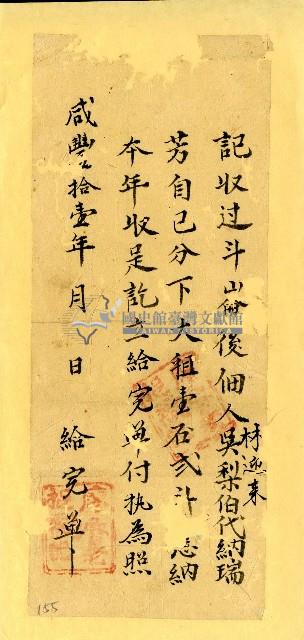 記收过斗山𪨶後佃人吳梨伯代納瑞
林迎来
芳自己分下大租壹石弍斗 忠納
本年收足訖立給完单付执為照
咸豐拾壹年 月 日 給完单
國史館臺灣文獻館
TAIWAN HISTORICA
155